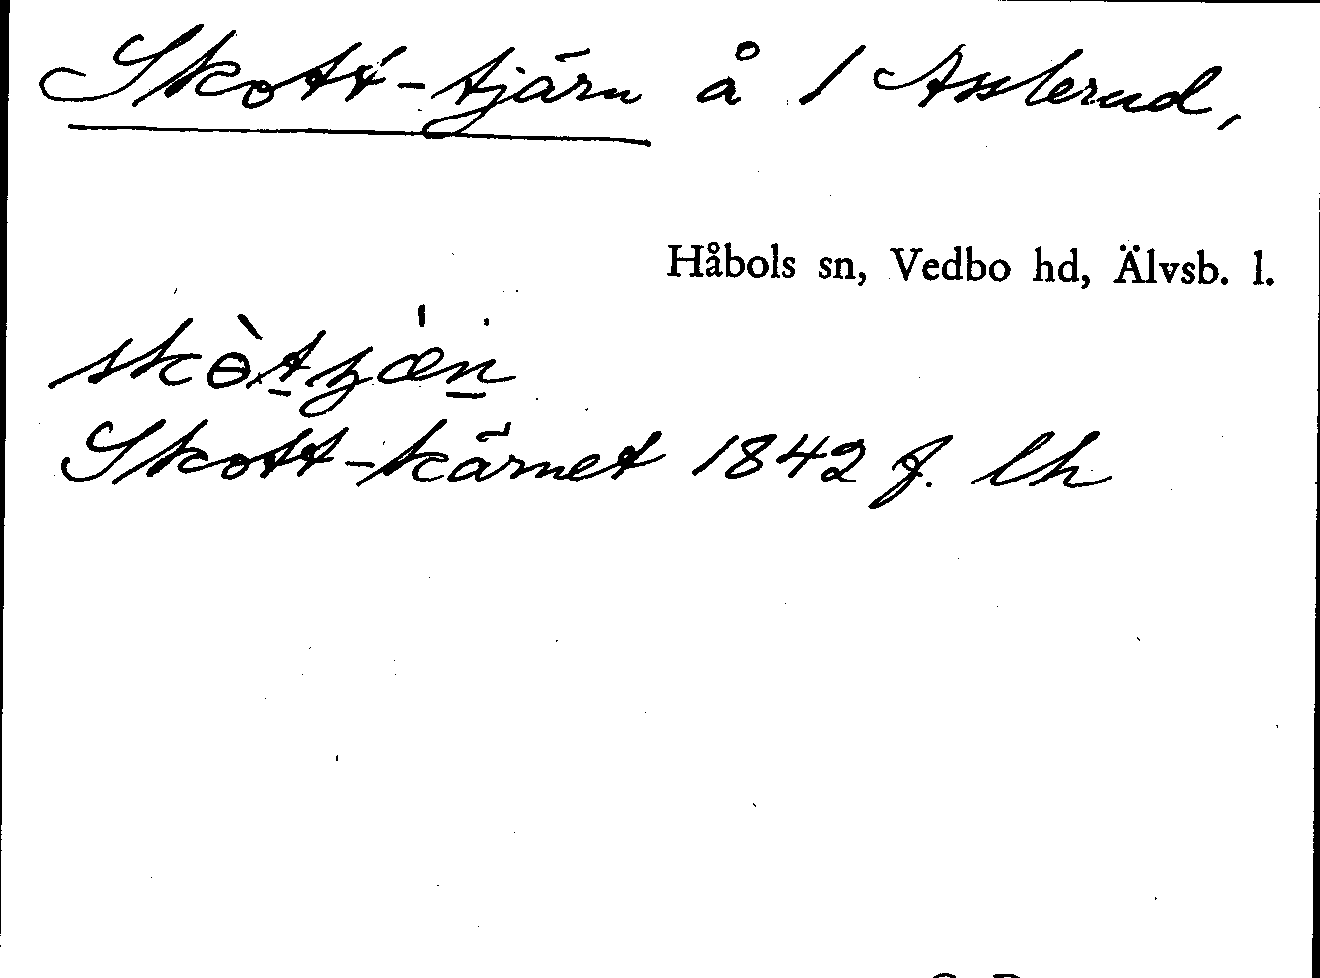 Skott-tjärn å 1 Asslerud,
Håbols sn, Vedbo hd, Älvsb. l.
Skott-kärnet 1842 f. lh